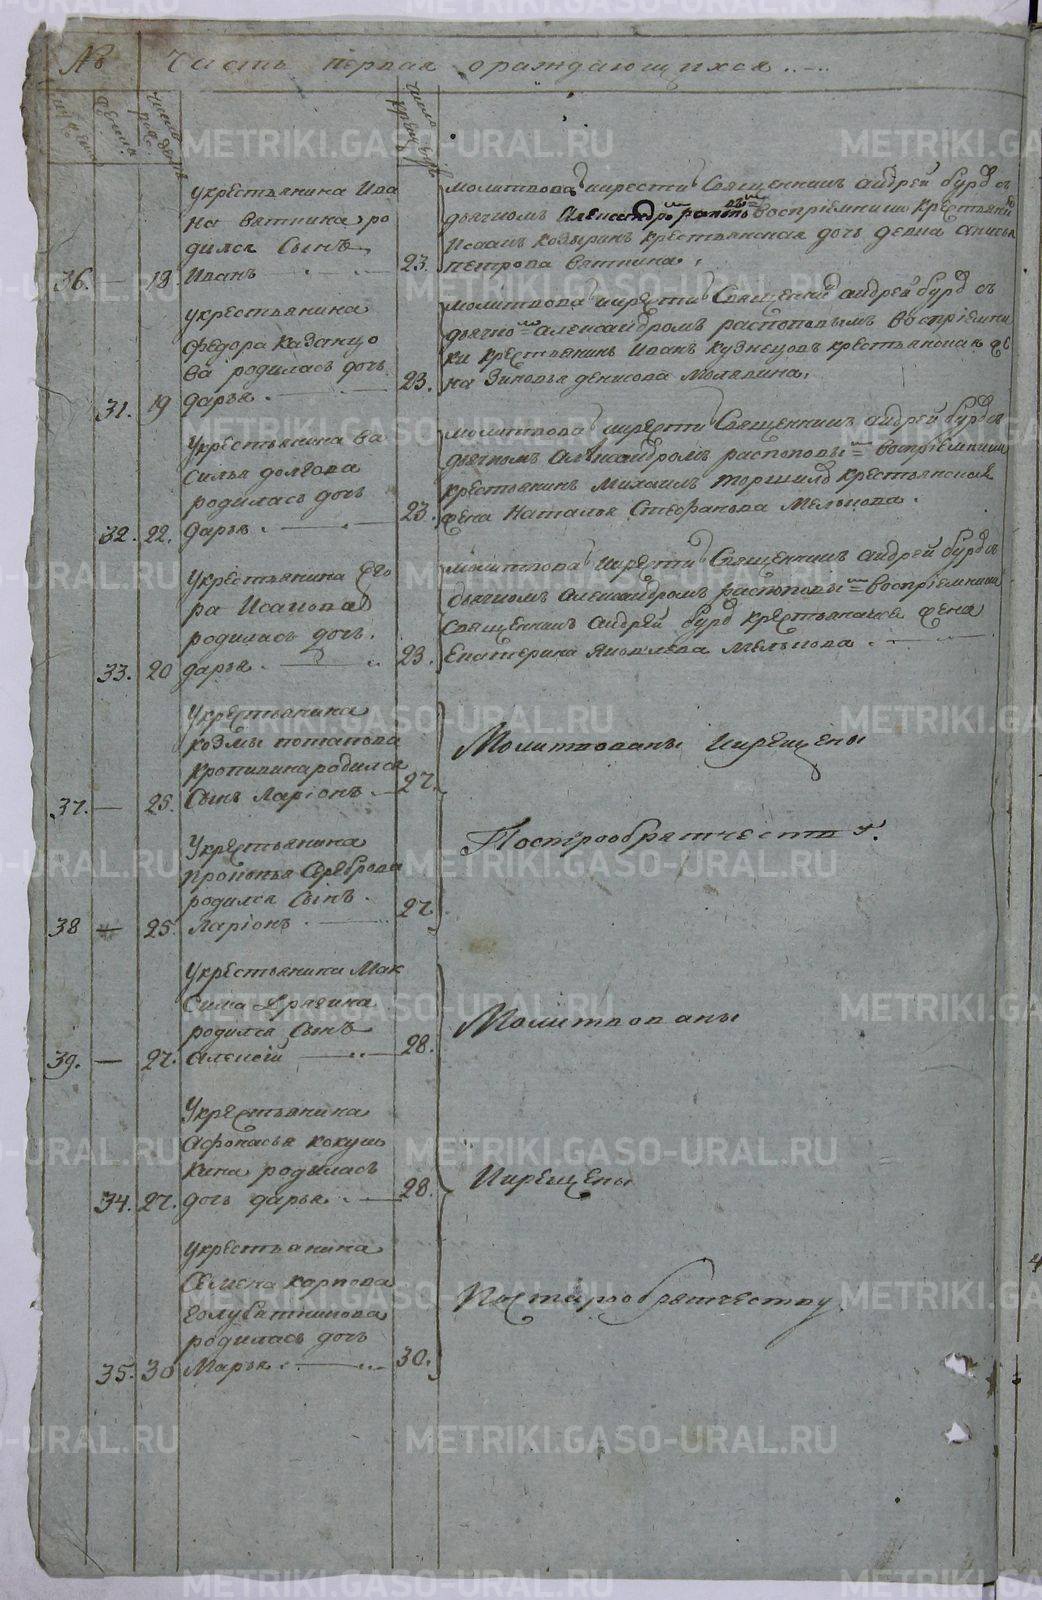 № Часть первая о раждающихся
У крестьянина Ива
на Вяткина ро
дился сынъ
36. — 18. Иванъ 23.
молитвовалъ и крестилъ Священникъ Андрей Бурд съ
дьячкомъ Александро
воспрiемники крестьяни
Исаакъ Козыринъ крестьянская дочь девка Анисья
петрова Вяткина.
У крестьянина
Федора Казанцо
ва родилась дочь
31. 19 дарья 23.
молитвовалъ и крестилъ Священни Андрей Бурд съ
дьячкомъ Александромъ распоповымъ воспрiемни
ки крестьянинъ Иванъ Кузнецовъ крестьянская де
Зиновья денисова Молявина.
У крестьянина Ва
силья долгова
родилась дочь
32. 22. дарья 23.
молитвовалъ и крестилъ Священникъ Андрей Бурд съ
дьячкомъ Александромъ распоповы воспрiемники
крестьянинъ Михаилъ крестьянская
жена Наталья Стефанова Мелькова.
У крестьянина Его
ра Исакова
родилась дочь
33. 20 дарья 23.
молитвовалъ и крестилъ Священникъ Андрей Бурд съ
дьячкомъ Александромъ распоповы воспрiемники
Священникъ Андрей Бурд крестьянская жена
Екатерина Яковлева Мелькова
У крестьянина
козмы потапова
кропивина родился
37. — 25. Сынъ Ларiонъ 27.
Молитвованы и крещены
У крестьянина
прокопья Сереброва
родился Сынъ
38 — 25. Ларiонъ 27
По строобрятчеству.
У крестьянина Мак
сима Дрягина
родился Сынъ
39. — 27. Алексiй 28.
Молитвованы
У крестьянина
Афонасья кокуш
кина родилась
34. 27. дочь дарья 28.
И крещены
У крестьянина
Семена карпова
голубятникова
родилась дочь
35. 30 Марья 30.
По старообрятчеству.
METRIKI.GASO-URAL.RU